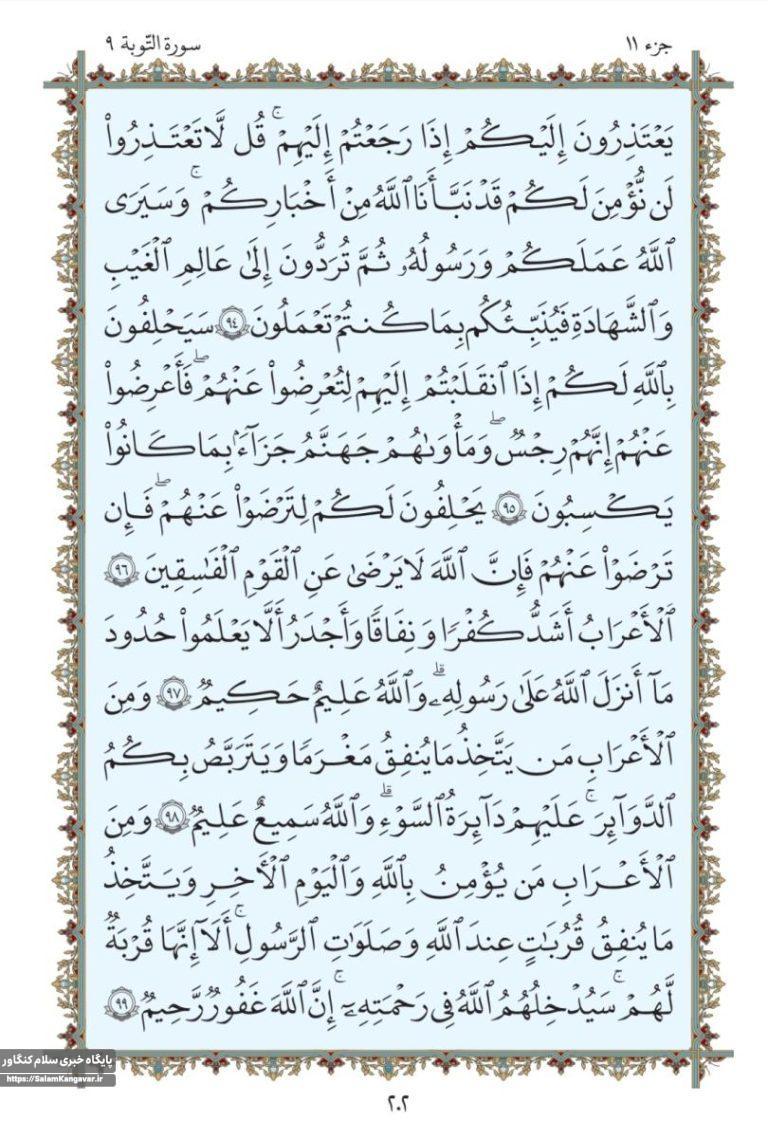 جزء ١١
سورة التّوبة ٩
يَعْتَذِرُونَ إِلَيْكُمْ إِذَا رَجَعْتُمْ إِلَيْهِمْ ۚ قُل لَّا تَعْتَذِرُوا۟
لَن نُّؤْمِنَ لَكُمْ قَدْ نَبَّأَنَا ٱللَّهُ مِنْ أَخْبَارِكُمْ ۚ وَسَيَرَى
ٱللَّهُ عَمَلَكُمْ وَرَسُولُهُۥ ثُمَّ تُرَدُّونَ إِلَىٰ عَالِمِ ٱلْغَيْبِ
وَٱلشَّهَادَةِ فَيُنَبِّئُكُم بِمَا كُنتُمْ تَعْمَلُونَ ٩٤ سَيَحْلِفُونَ
بِٱللَّهِ لَكُمْ إِذَا ٱنقَلَبْتُمْ إِلَيْهِمْ لِتُعْرِضُوا۟ عَنْهُمْ ۖ فَأَعْرِضُوا۟
عَنْهُمْ إِنَّهُمْ رِجْسٌ ۖ وَمَأْوَىٰهُمْ جَهَنَّمُ جَزَآءًۢ بِمَا كَانُوا۟
يَكْسِبُونَ ٩٥ يَحْلِفُونَ لَكُمْ لِتَرْضَوْا۟ عَنْهُمْ ۖ فَإِن
تَرْضَوْا۟ عَنْهُمْ فَإِنَّ ٱللَّهَ لَا يَرْضَىٰ عَنِ ٱلْقَوْمِ ٱلْفَاسِقِينَ ٩٦
ٱلْأَعْرَابُ أَشَدُّ كُفْرًا وَنِفَاقًا وَأَجْدَرُ أَلَّا يَعْلَمُوا۟ حُدُودَ
مَآ أَنزَلَ ٱللَّهُ عَلَىٰ رَسُولِهِۦ ۗ وَٱللَّهُ عَلِيمٌ حَكِيمٌ ٩٧ وَمِنَ
ٱلْأَعْرَابِ مَن يَتَّخِذُ مَا يُنفِقُ مَغْرَمًا وَيَتَرَبَّصُ بِكُمُ
ٱلدَّوَآئِرَ ۚ عَلَيْهِمْ دَآئِرَةُ ٱلسَّوْءِ ۗ وَٱللَّهُ سَمِيعٌ عَلِيمٌ ٩٨ وَمِنَ
ٱلْأَعْرَابِ مَن يُؤْمِنُ بِٱللَّهِ وَٱلْيَوْمِ ٱلْآخِرِ وَيَتَّخِذُ
مَا يُنفِقُ قُرُبَاتٍ عِندَ ٱللَّهِ وَصَلَوَاتِ ٱلرَّسُولِ ۚ أَلَآ إِنَّهَا قُرْبَةٌ
لَّهُمْ ۚ سَيُدْخِلُهُمُ ٱللَّهُ فِى رَحْمَتِهِۦٓ ۗ إِنَّ ٱللَّهَ غَفُورٌ رَّحِيمٌ ٩٩
پایگاه خبری سلام کنگاور
https://SalamKangavar.ir
٢٠٢